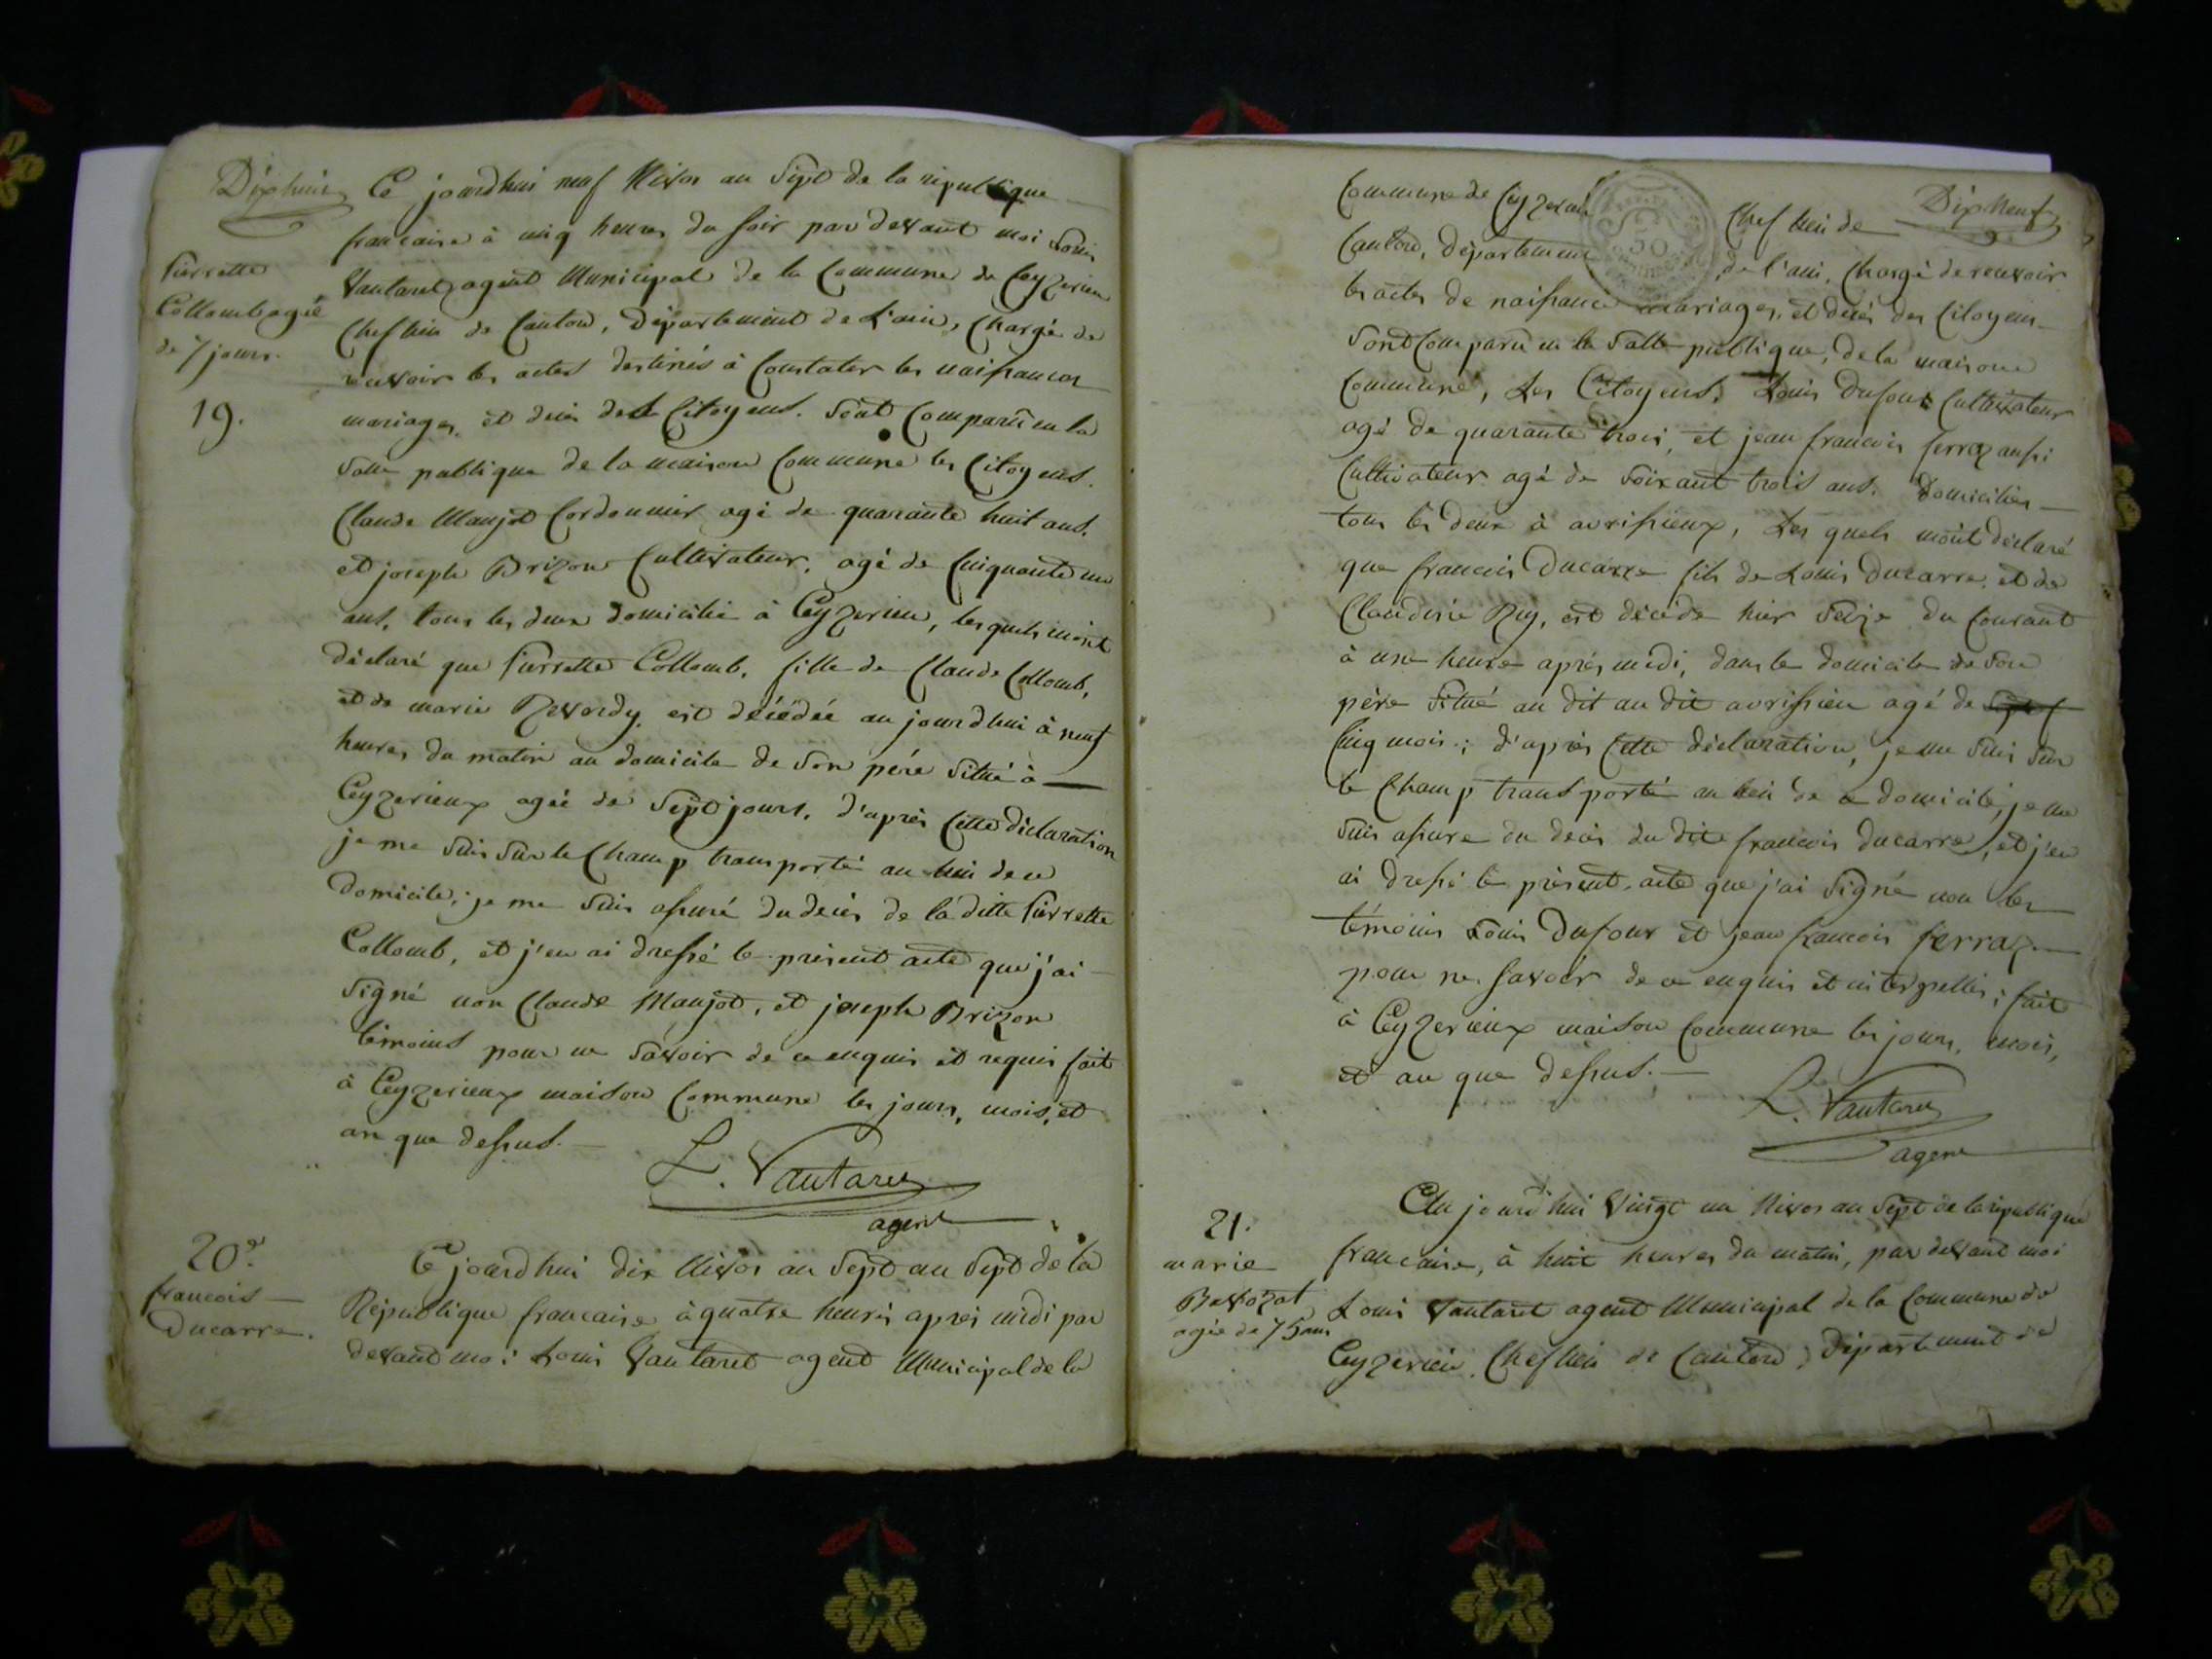 Dixhuit
Ce jourdhui neuf Nivos an Sept de la republique
francaise à cinq heures du soir par devant moi Louis
Vautaret agent Municipal de la Commune de Ceyzerieu
Chef lieu de Canton, Département de L'ain, Chargé de
recevoir les actes destinés à Constater les naissances
mariages, et décès des Citoyens. Sont Comparü en la
Salle publique de la maison Commune les Citoyens.
Claude Manjot Cordonnier agé de quarante huit ans.
et joseph Brizon Cultivateur, agé de Cinquante un
ans, tous les deux domicilié à Ceyzerieu, lesquels mont
déclaré que Pierrette Collomb, fille de Claude Collomb,
et de marie Revordy, est décédée au jourdhui à neuf
heures du matin au domicile de Son pére Situé à
Ceyzerieux agée de Sept jours. d'après Cette déclaration
je me Suis Sur le Champ transporté au lieu de ce
domicile, je me Suis assuré du décès de la ditte Pierrette
Collomb, et j'en ai dressé le présent acte que j'ai
Signé non Claude Manjot, et joseph Brizon
témoins pour ne Savoir de ce enquis et requis fait
à Ceyzerieux maison Commune les jours, mois, et
an que dessus.
L. Vautaret
agent
Pierrette
Collomb agée
de 7 jours.
19.
20e
francois
Ducarre.
Ce jourdhui dix Nivos an Sept an Sept de la
République francaise à quatre heures après midi par
devant moi Louis Vautaret agent Municipal de la
Dix Neuf
Commune de Ceyzerieu Chef lieu de
Canton, Département de l'ain, Chargé de recevoir
les actes de naissance mariages, et décès des Citoyens
Sont Comparü en la Salle publique, de la maison
Commune, Les Citoyens, Louis Dufour Cultivateur
agé de quarante trois, et jean francois ferraz aussi
Cultivateur agé de Soixant trois ans. Domiciliés
tous les deux à avrissieux, Les quels m'ont déclaré
que francois Ducarre fils de Louis Ducarre, et de
Claudine Rey, est décéde hier Seize du Courant
à une heure après midi, dans le domicile de Son
père Situé au dit au dit avrissieu agé de
Cinq mois; d'après Cette déclaration, je me Suis Sur
le Champ transporté au lieu de ce domicile, je me
Suis assure du décès du dit francois Ducarre, et j'en
ai dressé le présent acte que j'ai Signé non les
témoins Louis Dufour et jean francois ferraz
pour ne Savoir de ce enquis et interpellés; fait
à Ceyzerieux maison Commune les jours, mois,
et an que dessus.
L. Vautaret
agent
21.
marie
Bavozat
agée de 75 ans
Au jourd'hui Vingt un Nivos an Sept de la republique
francaise, à huit heures du matin, par devant moi
Louis Vautaret agent Municipal de la Commune de
Ceyzerieu, Chef lieu de Canton, Département de